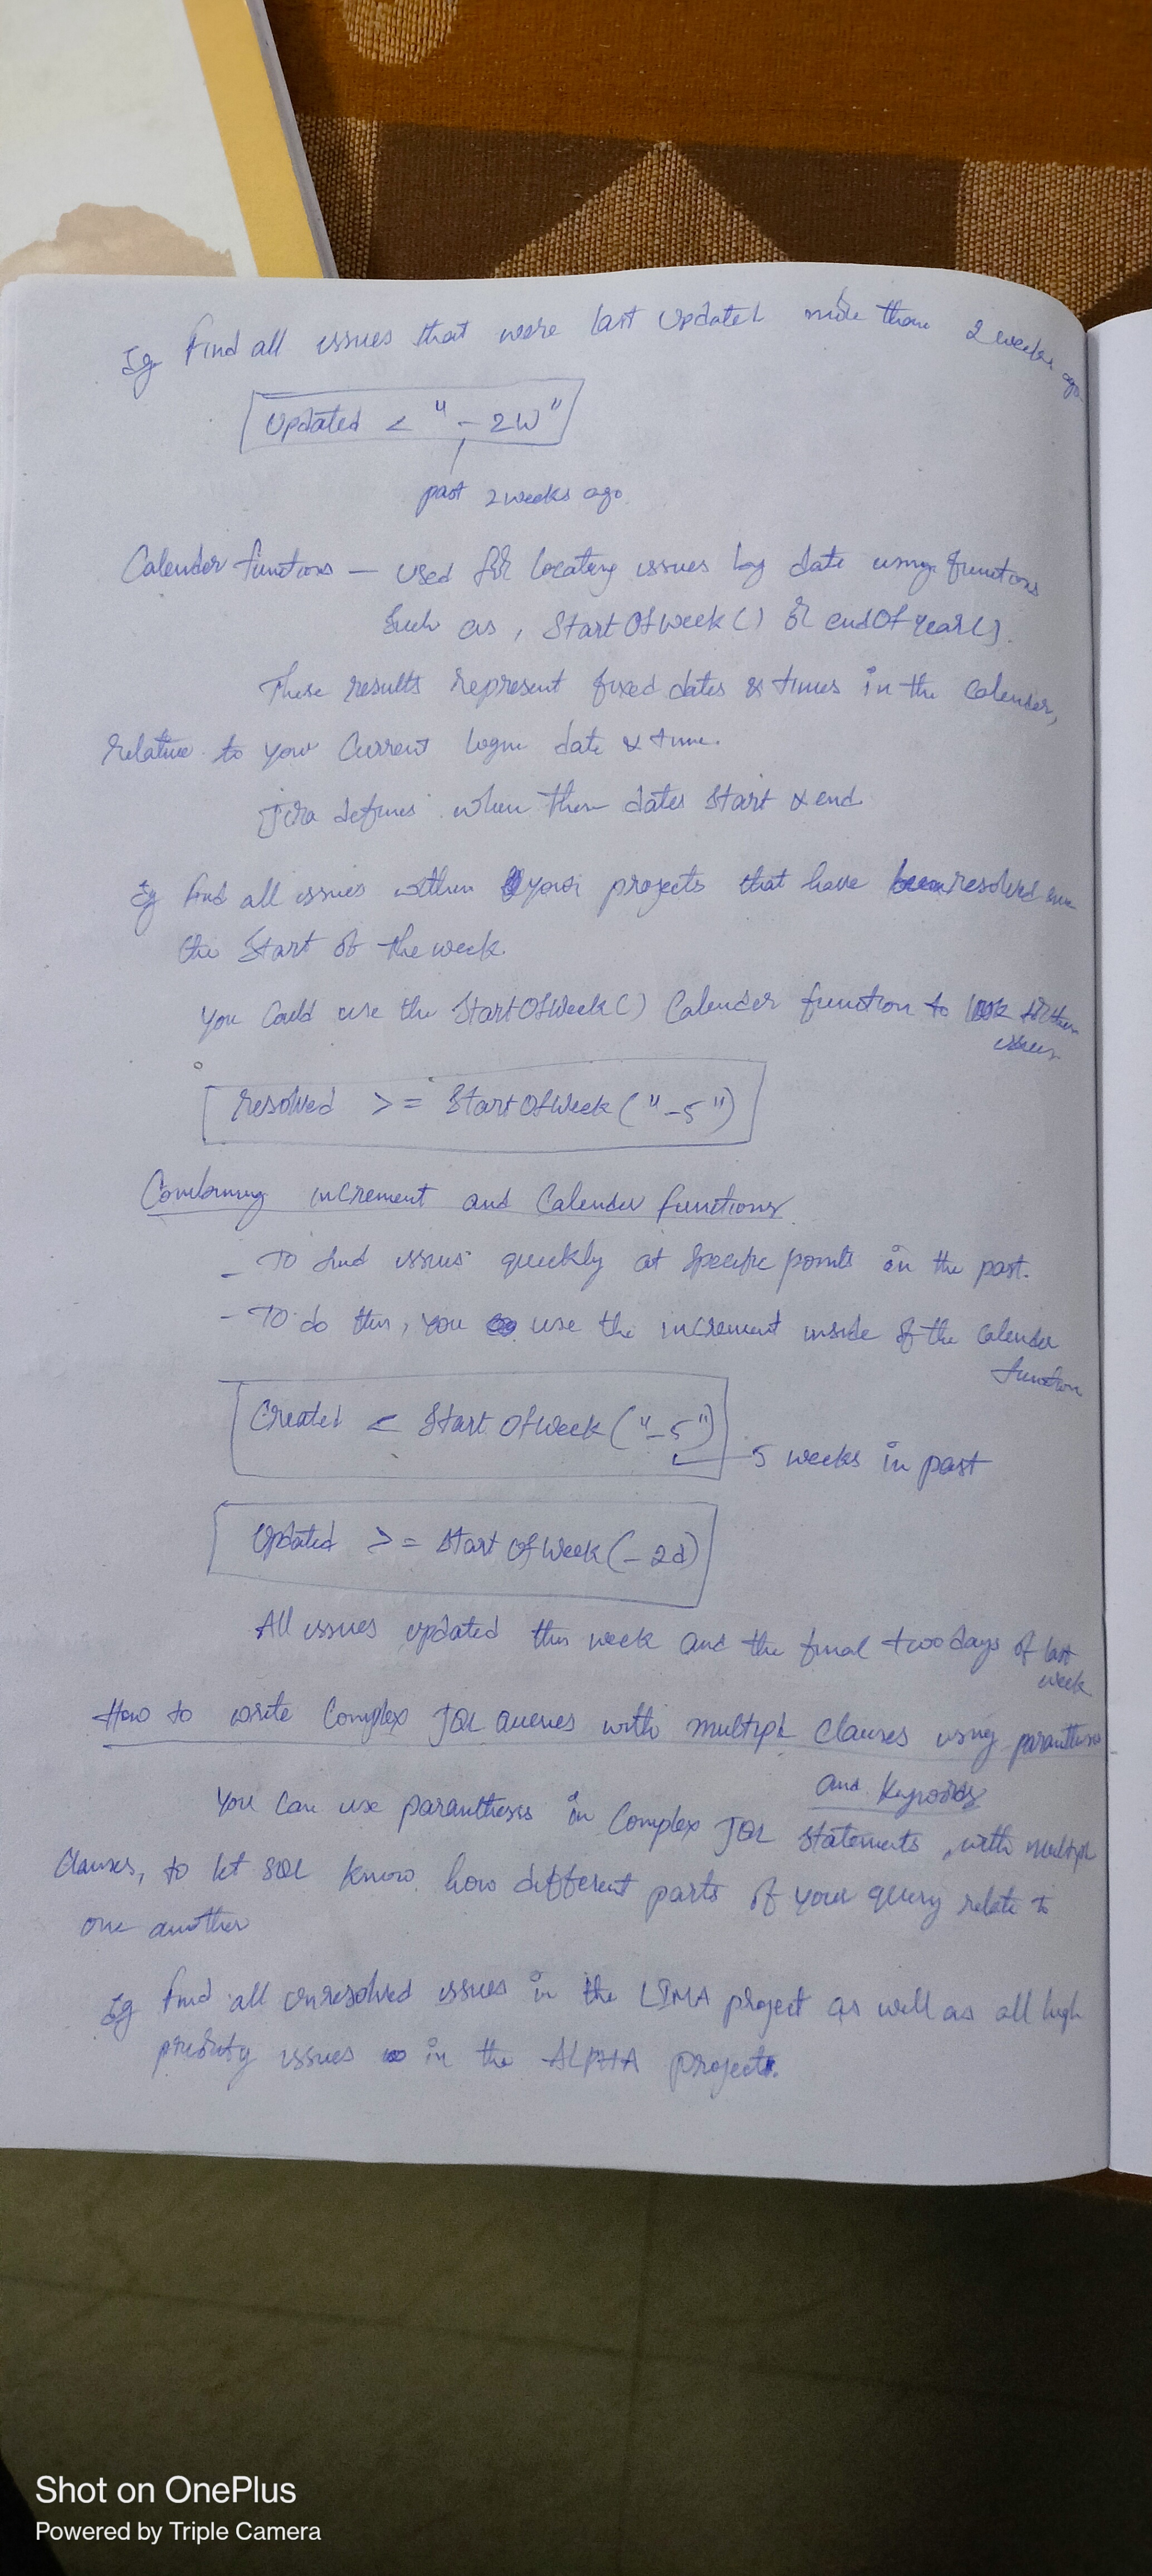 Eg Find all issues that were last updated more than 2 weeks ago
Updated < "-2W"
past 2 weeks ago.
Calender functions — used for locating issues by date using functions
Such as, StartOfWeek() or endOfYear().
These results represent fixed dates & times in the Calender,
relative to your Current login date & time.
Jira defines when these dates start & end
Eg find all issues within your projects that have been resolved since
the start of the week.
You Could use the StartOfWeek() Calender function to look for these
issues
resolved >= StartOfWeek("-5")
Combining increment and Calender functions
- To find issues quickly at specific points in the past.
- To do this, You use the increment inside of the Calender
function
Created < Start OfWeek("-5")
5 weeks in past
Updated >= Start Of Week(-2d)
All issues updated this week and the final two days of last
week
How to write Complex JQL queries with multiple Clauses using
and
You Can use paranthesis in Complex JQL statements, with multiple
Clauses, to let SQL know how different parts of your query relate to
one another
Eg find all unresolved issues in the LIMA project as well as all high
priority issues in the ALPHA project.
Shot on OnePlus
Powered by Triple Camera